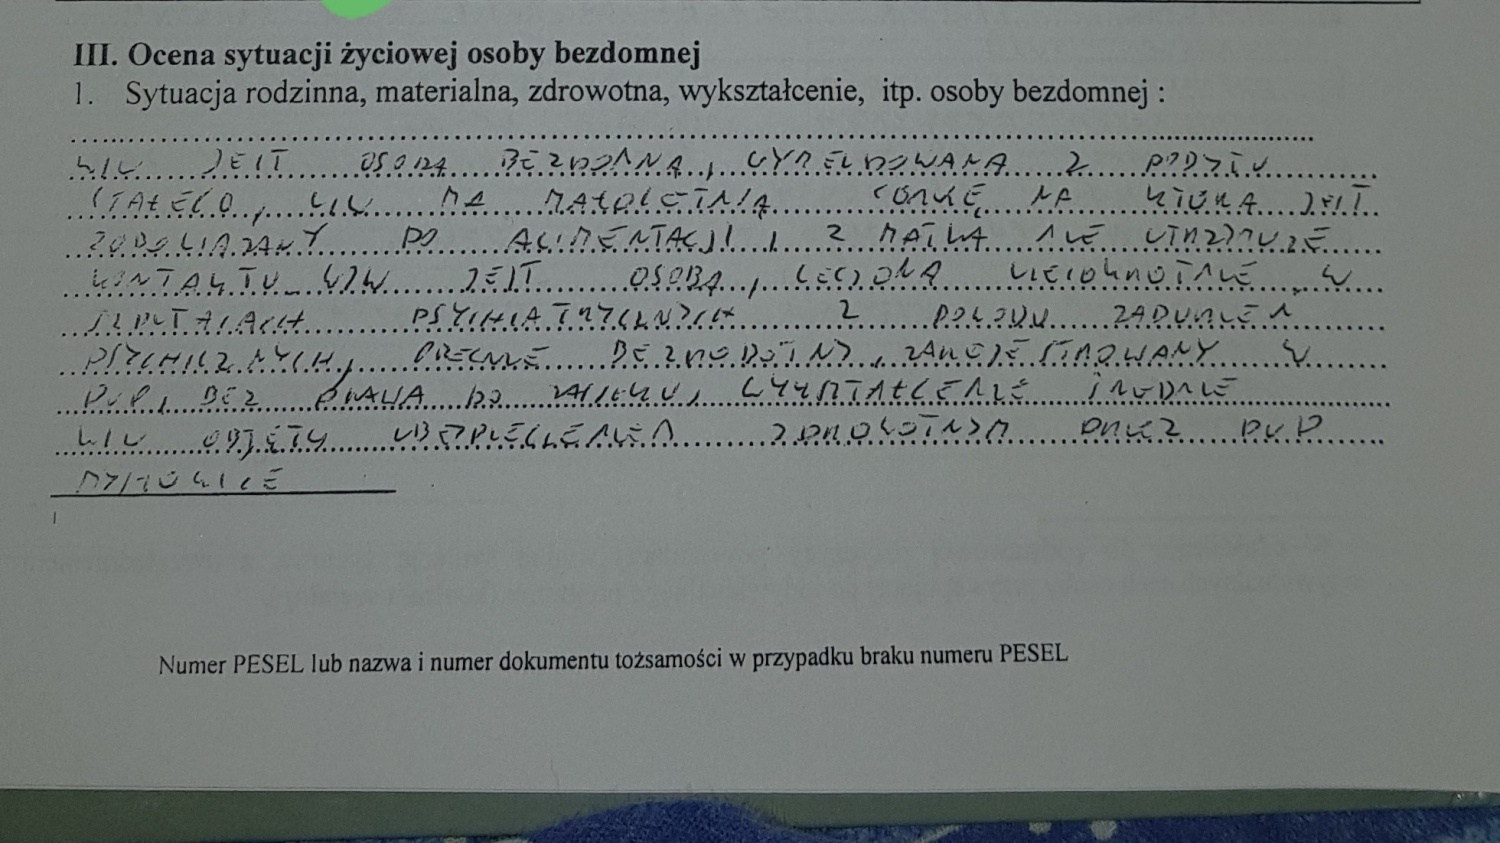 III. Ocena sytuacji życiowej osoby bezdomnej
1. Sytuacja rodzinna, materialna, zdrowotna, wykształcenie, itp. osoby bezdomnej :
W/W JEST OSOBĄ BEZDOMNĄ, WYMELDOWANA Z POBYTU
STAŁEGO, W/W MA MAŁOLETNIĄ CÓRKĘ NA KTÓRĄ JEST
ZOBOWIĄZANY DO ALIMENTACJI, Z MATKĄ NIE UTRZYMUJE
KONTAKTU W/W JEST OSOBĄ, LECZONĄ WIELOKROTNIE W
SZPITALACH PSYCHIATRYCZNYCH Z POWODU ZABURZEŃ
PSYCHICZNYCH, OBECNIE BEZROBOTNY, ZAREJESTROWANY W
PUP, BEZ PRAWA DO ZASIŁKU, WYKSZTAŁCENIE ŚREDNIE
W/W OBJĘTY UBEZPIECZENIEM ZDROWOTNYM PRZEZ PUP
MYSŁOWICE
Numer PESEL lub nazwa i numer dokumentu tożsamości w przypadku braku numeru PESEL